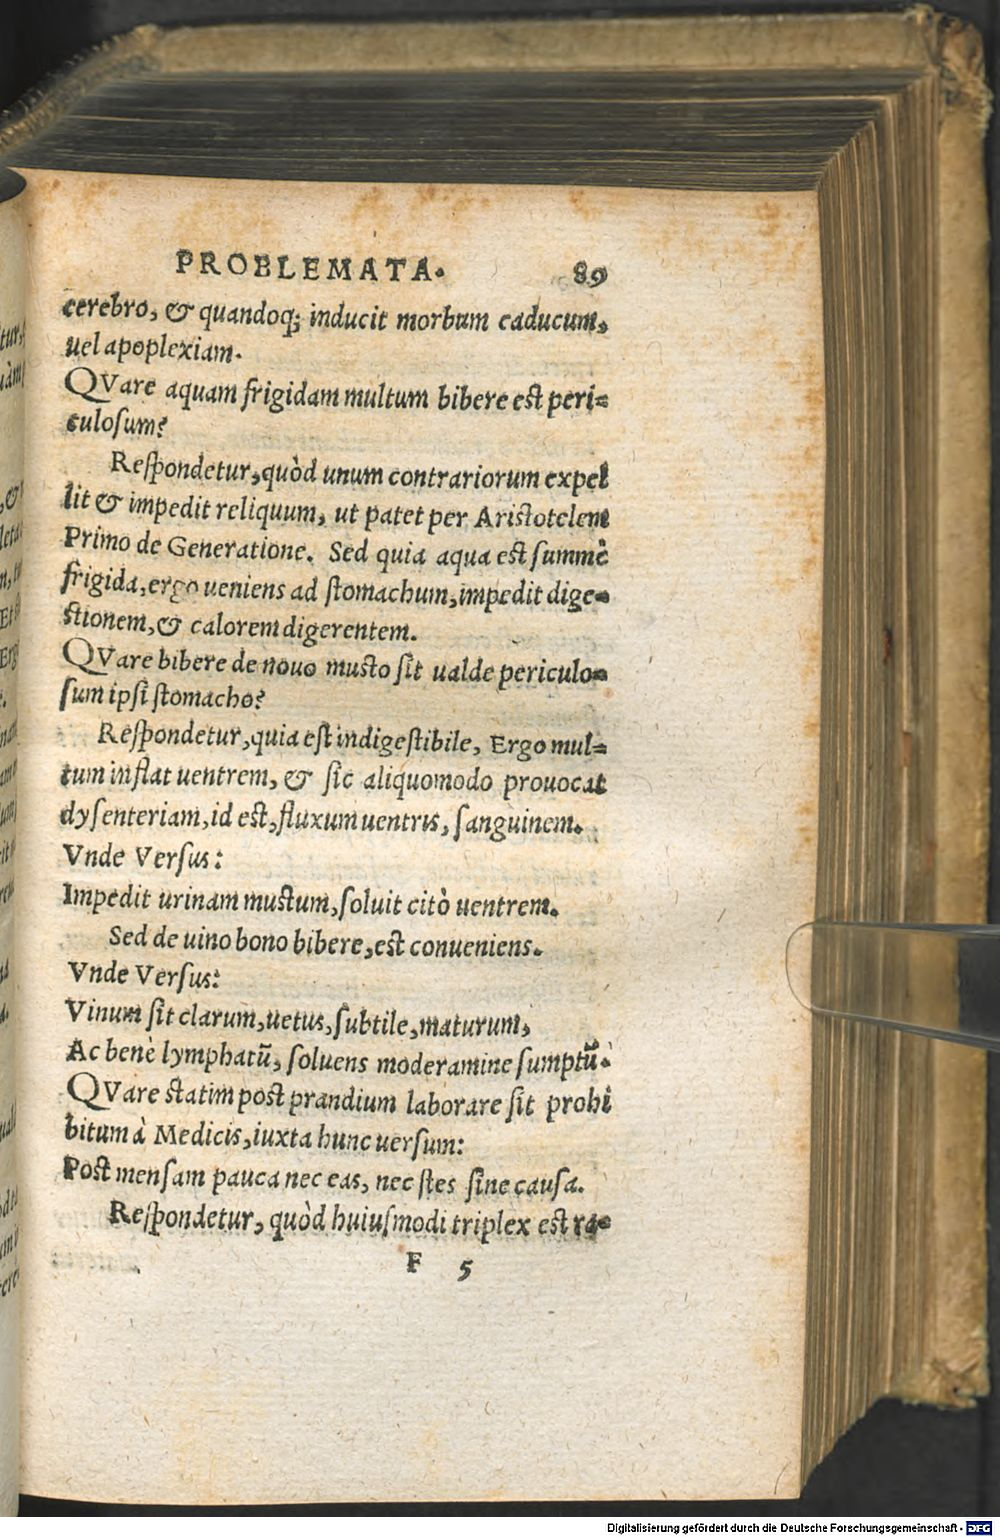 PROBLEMATA. 89
cerebro, & quandoq; inducit morbum caducum,
uel apoplexiam.
QVare aquam frigidam multum bibere est peri=
culosum?
Respondetur, quòd unum contrariorum expel
lit & impedit reliquum, ut patet per Aristotelem
Primo de Generatione. Sed quia aqua est summè
frigida, ergo ueniens ad stomachum, impedit dige=
stionem, & calorem digerentem.
QVare bibere de nouo musto sit ualde periculo=
sum ipsi stomacho?
Respondetur, quia est indigestibile, Ergo mul=
tum inflat uentrem, & sic aliquomodo prouocat
dysenteriam, id est, fluxum uentris, sanguinem.
Vnde Versus:
Impedit urinam mustum, soluit citò uentrem.
Sed de uino bono bibere, est conueniens.
Vnde Versus:
Vinum sit clarum, uetus, subtile, maturum,
Ac benè lymphatũ, soluens moderamine sumptũ.
QVare statim post prandium laborare sit prohi
bitum à Medicis, iuxta hunc uersum:
Post mensam pauca nec eas, nec stes sine causa.
Respondetur, quòd huiusmodi triplex est ra=
F 5
Digitalisierung gefördert durch die Deutsche Forschungsgemeinschaft - DFG